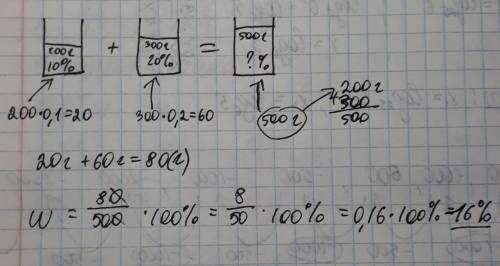 200г + 300г = 500г
10% 20% ?%
200·0,1=20 300·0,2=60 500г +200г
300
500
20г + 60г = 80(г)
W = 80/500 ·100% = 8/50 ·100% = 0,16·100% = 16%